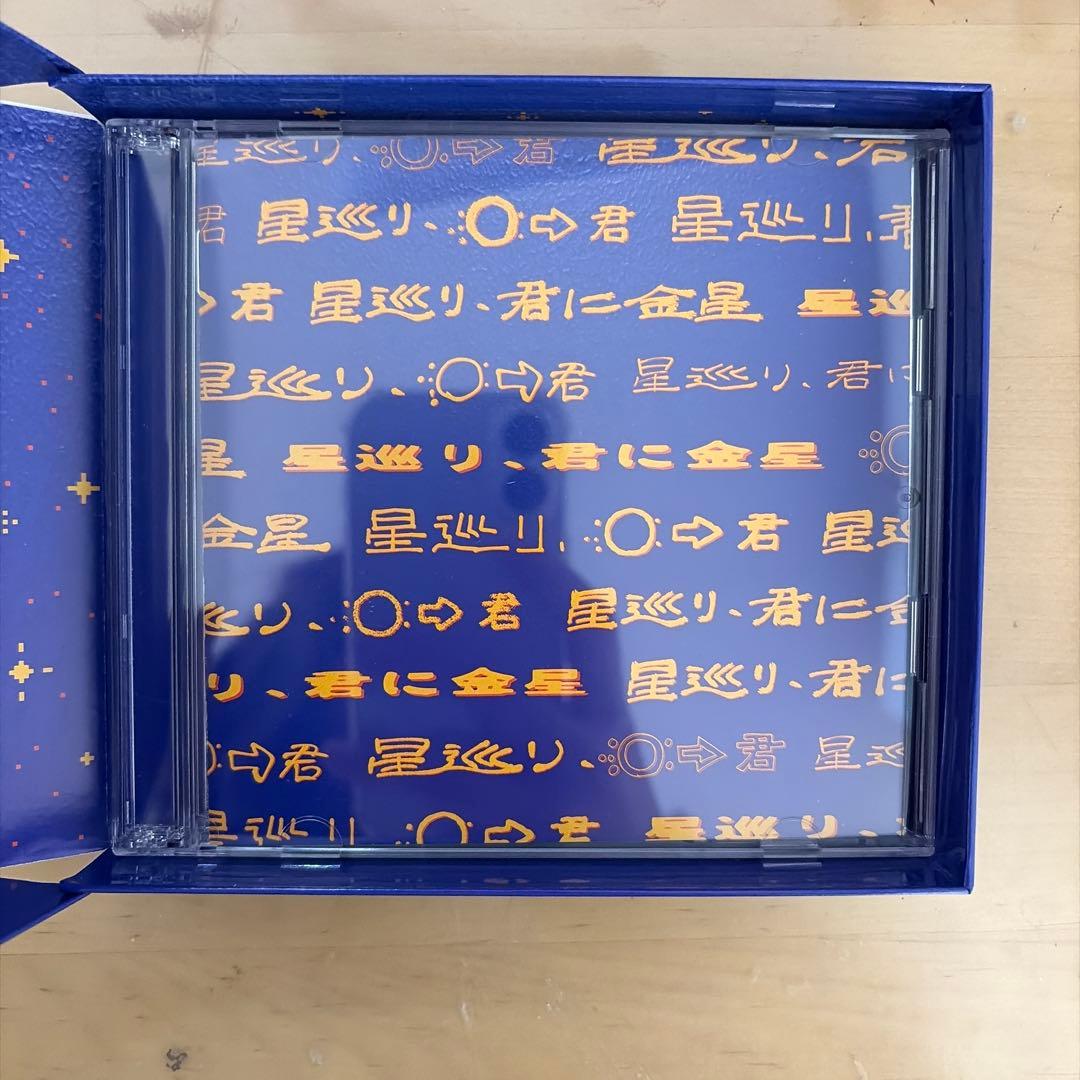 星巡り、○⇨君 星巡り、君
君 星巡り、○⇨君 星巡り、君
君 星巡り、君に金星 星巡
星巡り、○⇨君 星巡り、君に
星 星巡り、君に金星 ○
金星 星巡り、○⇨君 星巡
巡り、○⇨君 星巡り、君に金
り、君に金星 星巡り、君に
○⇨君 星巡り、○⇨君 星巡
星巡り ○⇨君 星巡り、